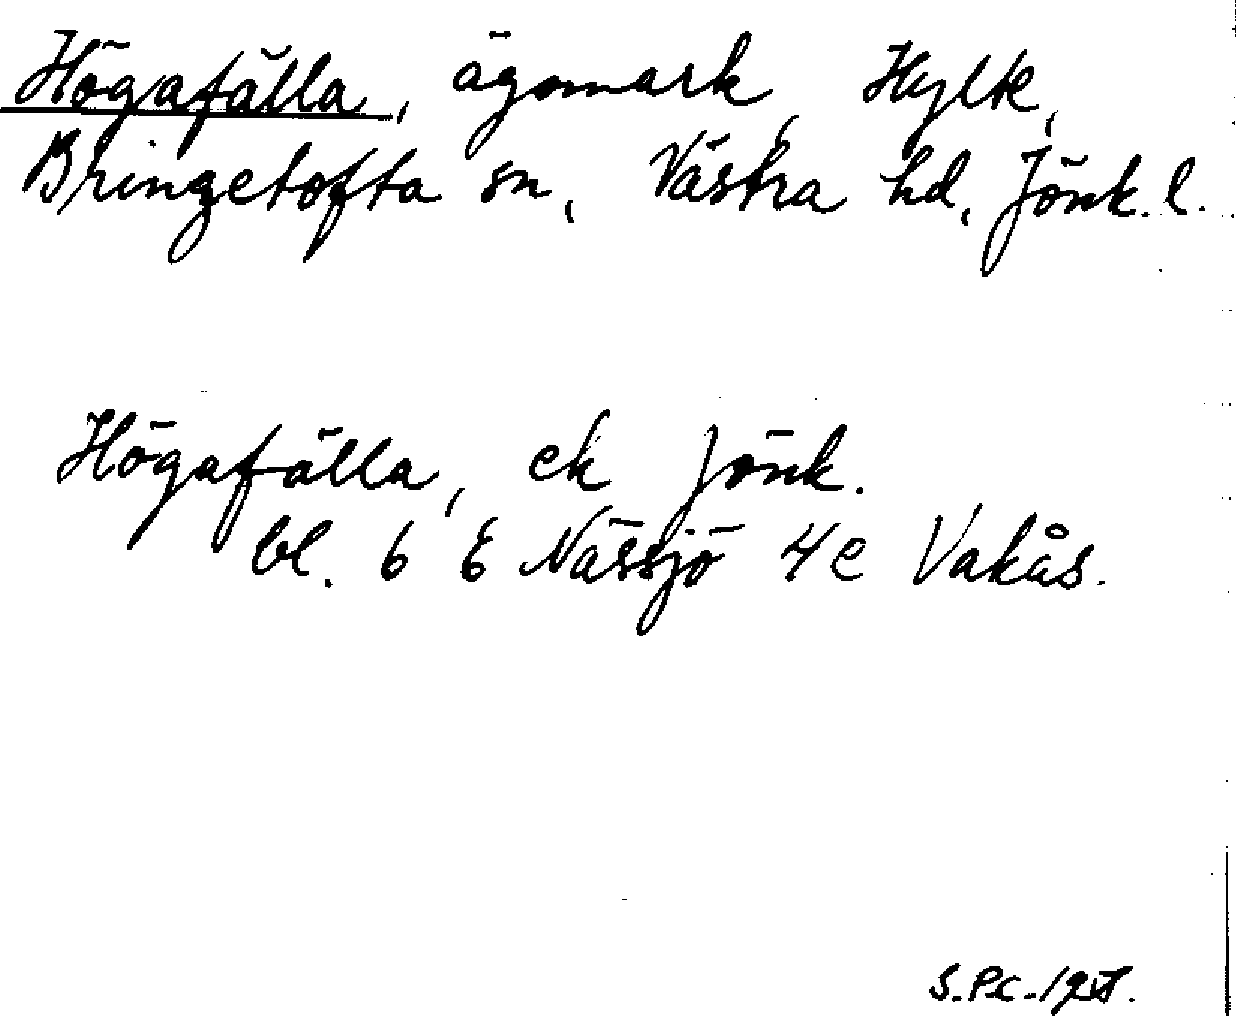 Högafälla, ägomark, Hylte,
Bringetofta sn, Västra hd, Jönk. l.
Högafälla, ek Jönk.
bl. 6 E Nässjö 4 e Vakås.